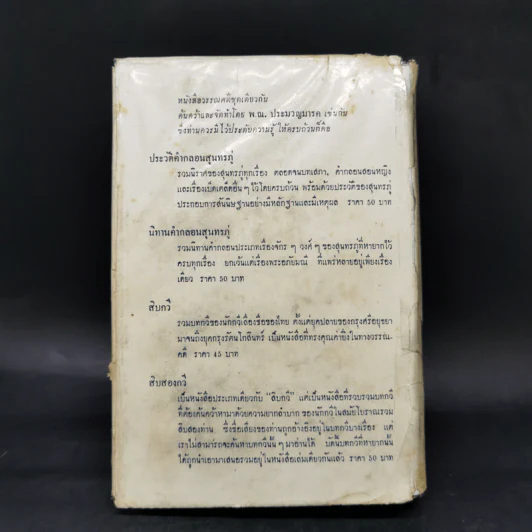 หนังสือวรรณคดีชุดเดียวกับ
ค้นคว้าและจัดทำโดย พ.ณ. ประมวญมารค เช่นกัน
ซึ่งท่านควรมีไว้ประดับความรู้ ให้ครบถ้วนก็คือ
ประวัติคำกลอนสุนทรภู่
รวมนิราศของสุนทรภู่ทุกเรื่อง ตลอดจนบทเสภา, คำกลอนสอนหญิง
และเรื่องเบ็ดเตล็ดอื่น ๆ ไว้โดยครบถ้วน พร้อมด้วยประวัติของสุนทรภู่
ประกอบการสันนิษฐานอย่างมีหลักฐานและมีเหตุผล ราคา 50 บาท
นิทานคำกลอนสุนทรภู่
รวมนิทานคำกลอนประเภทเรื่องจักร ๆ วงศ์ ๆ ของสุนทรภู่ที่หายากไว้
ครบทุกเรื่อง ยกเว้นแต่เรื่องพระอภัยมณี ที่แพร่หลายอยู่เพียงเรื่อง
เดียว ราคา 50 บาท
สิบกวี
รวมบทกวีของนักกวีเลื่องชื่อของไทย ตั้งแต่ยุคปลายของกรุงศรีอยุธยา
มาจนถึงยุคกรุงรัตนโกสินทร์ เป็นหนังสือที่ทรงคุณค่ายิ่งในทางวรรณ-
คดี ราคา 45 บาท
สิบสองกวี
เป็นหนังสือประเภทเดียวกับ “สิบกวี” แต่เป็นหนังสือที่รวบรวมบทกวี
ที่ต้องค้นคว้าหามาด้วยความยากลำบาก ของนักกวีในสมัยโบราณรวม
สิบสองท่าน ซึ่งชื่อเสียงของท่านถูกอ้างถึงอยู่ในบทกวีบางเรื่อง แต่
เราไม่สามารถจะค้นหาบทกวีนั้น ๆ มาอ่านได้ บัดนี้บทกวีที่หายากนั้น
ได้ถูกนำเอามาเสนอรวมอยู่ในหนังสือเล่มเดียวกันแล้ว ราคา 50 บาท